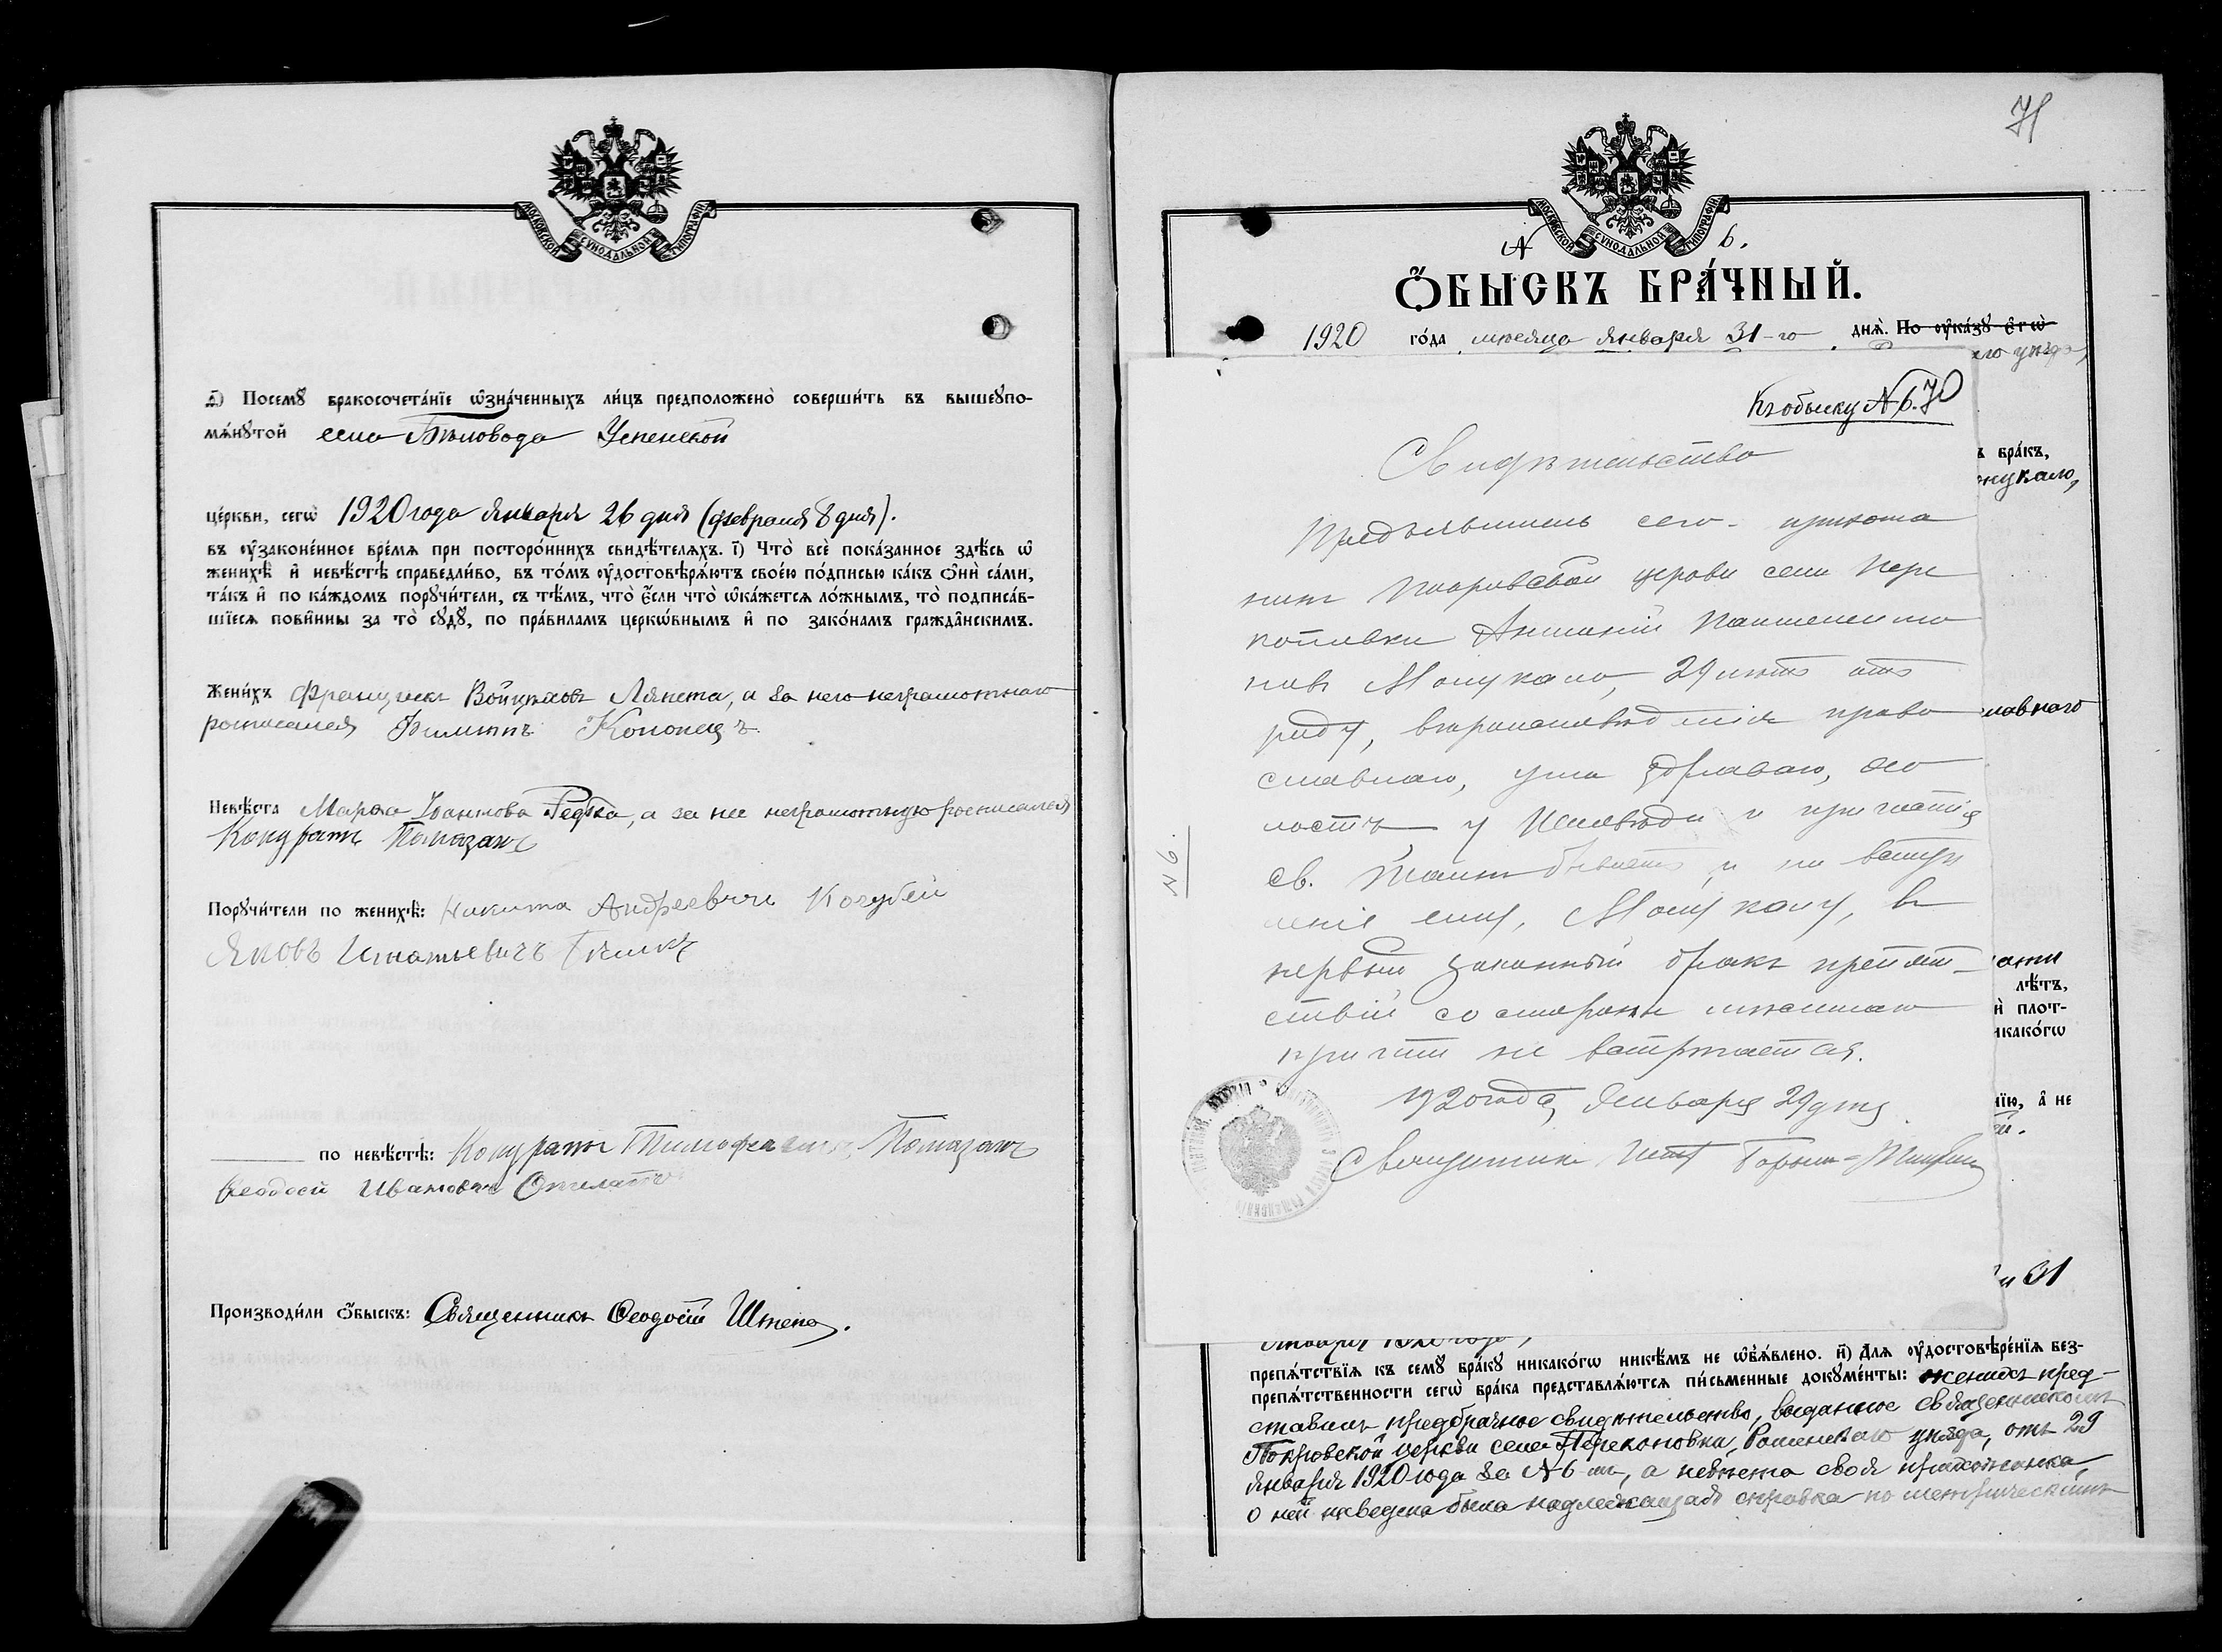 МОСКОВСКОЙ СУНОДАЛЬНОЙ ТИПОГРАФІИ
Ѳ) Посемꙋ бракосочета́нїе ѡ҆зна́ченныхъ ли́цъ предположено̀ соверши́ть въ вышеꙋпо-
мѧ́нꙋтой села Бѣловода Успенской
це́ркви, сегѡ̀ 1920 года января 26 дня (февраля 8 дня).
въ ᲂу҆законе́нное вре́мѧ при посторо́ннихъ свидѣ́телѧхъ. і҃) Что̀ всѐ пока́занное здѣ́сь ѡ҆
женихѣ̀ и҆ невѣ́стѣ справедли́во, въ то́мъ ᲂу҆достовѣрѧ́ютъ свое́ю по́дписью ка́къ ѻ҆нѝ са́ми,
та́къ и҆ по ка́ждомъ порꙋчи́тели, съ тѣ́мъ, что̀ є҆́сли что̀ ѡ҆ка́жетсѧ ло́жнымъ, то̀ подписа́в-
шїесѧ пови́нны за то̀ сꙋдꙋ̀, по пра́виламъ церкѡ́внымъ и҆ по зако́намъ гражда̂нскимъ.
Жени́хъ Францискъ Войцеховъ Ляпета, а за него неграмотнаго
росписался Филиппъ Кононецъ.
Невѣ́ста Марѳа Іоаннова Редька, а за нее неграмотную росписался
Кондратъ Помазанъ
Порꙋчи́тели по женихѣ̀: Никита Андреевичъ Кочубей
Яковъ Игнатьевичъ
по невѣ́стѣ: Кондратъ Тимофеевичъ Помазанъ
Феодосій Ивановичъ
Производи́ли ѻ҆́быскъ: Священникъ Ѳеодосій Штепа.
71
МОСКОВСКОЙ СУНОДАЛЬНОЙ ТИПОГРАФІИ
№ 6.
Ѻ҆́БЫСКЪ БРА́ЧНЫЙ.
1920 го́да мѣсяца января 31-го днѧ̀. По ᲂу҆ка́зꙋ є҆гѡ̀
его уѣзда,
Къ обыску № 6. 70
Свидѣтельство
ъ бра́къ,
Предъявитель сего - прихожа
нинъ Покровской церкви села Пере
коповки Антоній Пантелеимо
новъ Моцукало, 29 лѣтъ отъ
роду, вѣроисповѣданія право
славнаго
славнаго, ума здраваго, его
ность у исповѣди и причастія
св. Таинъ бываетъ и на вступ
леніе ему, Моцукалу, въ
№ 6.
первый законный бракъ препят-
лѣ́тъ,
ствій со стороны мѣстнаго
и҆ пло́т-
никако́гѡ
причта не встрѣчается.
1920 года, Января 29 дня.
нїю, а҆ не
Священникъ Петръ
и 31
января 1920 года,
препѧ́тствїѧ къ семꙋ̀ бра́кꙋ никако́гѡ никѣ́мъ не ѡ҆б̾ѧ́влено. и҃) Длѧ ᲂу҆достовѣре́нїѧ без-
препѧ́тственности сегѡ̀ бра́ка представлѧ́ютсѧ пи́сьменные докꙋме́нты: женихъ пред-
ставилъ предбрачное свидѣтельство, выданное священникомъ
Покровской церкви села Перекоповки, Роменскаго уѣзда, отъ 29
января 1920 года за № 6-мъ, а невѣста своя прихожанка,
о ней наведена была надлежащая справка по метрическимъ